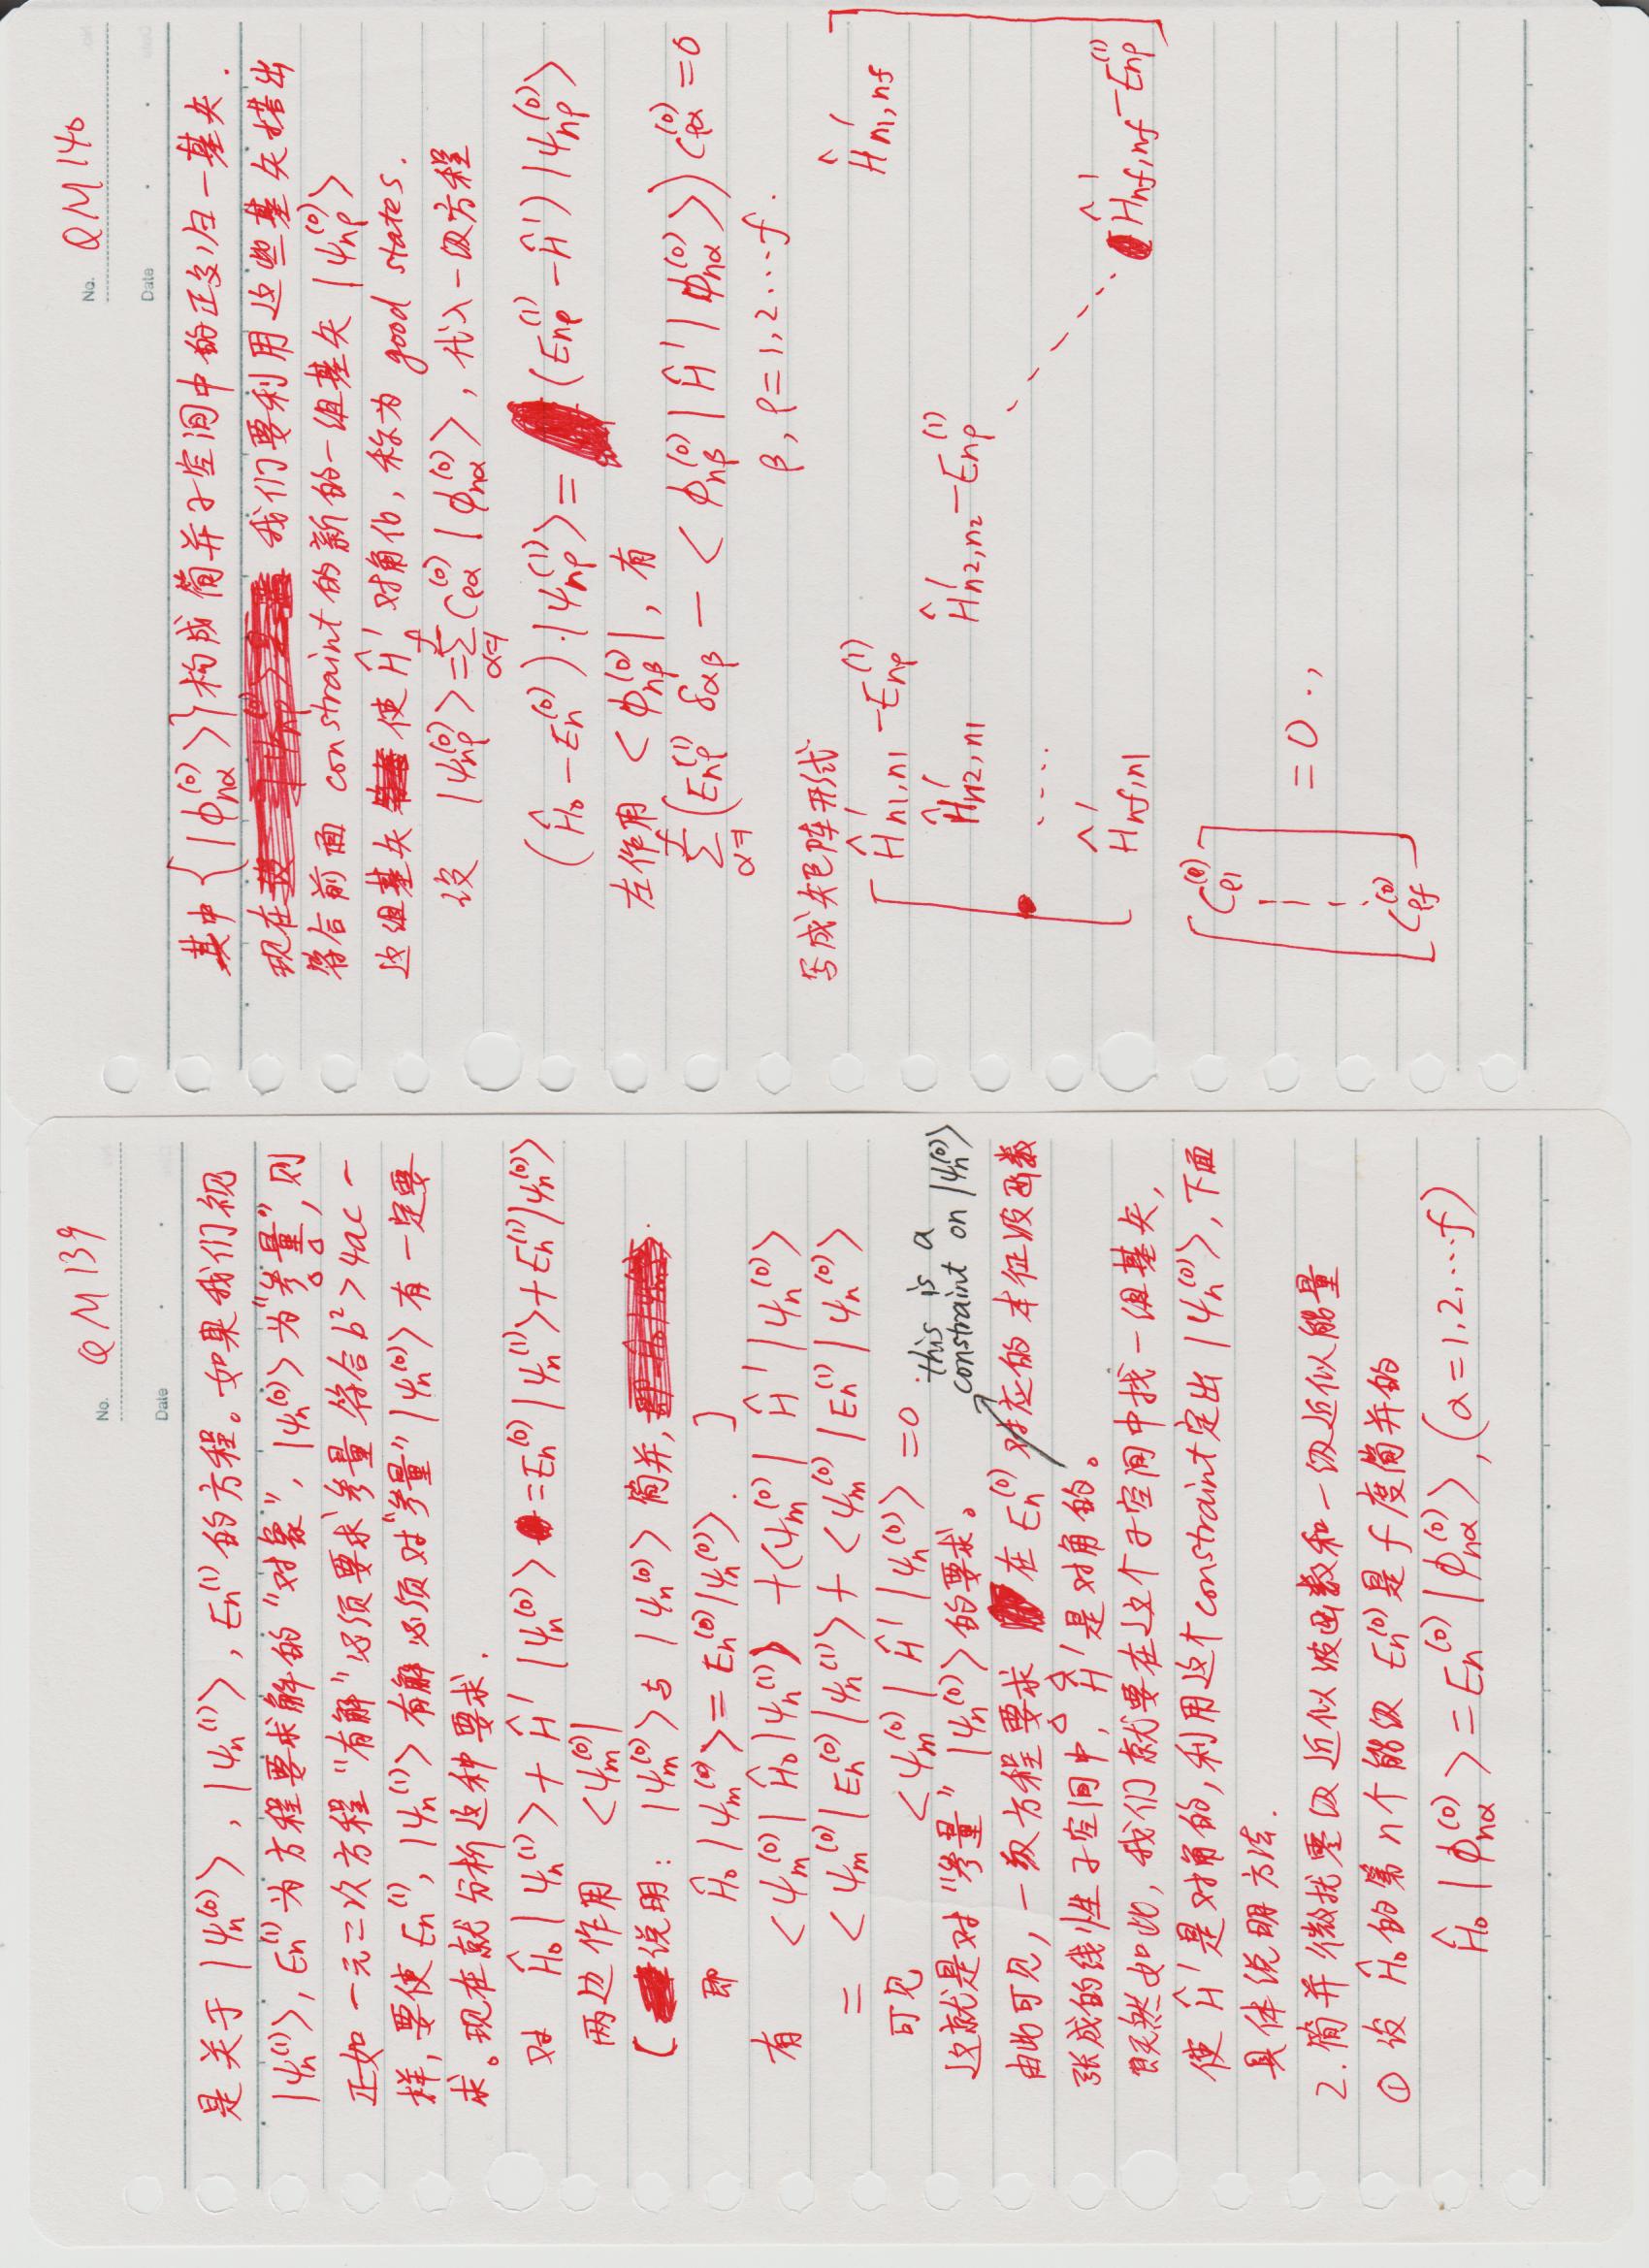 No. QM139
Date
是关于 |ψn^(0)⟩, |ψn^(1)⟩, En^(1) 的方程。如果我们视
|ψn^(1)⟩, En^(1) 为方程要求解的"对象", |ψn^(0)⟩ 为"参量", 则
正如一元二次方程"有解"必须要求参量符合b²>4ac一
样, 要使 En^(1), |ψn^(1)⟩ 有解必须对"参量" |ψn^(0)⟩ 有一定要
求。现在就分析这种要求.
对 Ĥ₀|ψn^(1)⟩ + Ĥ'|ψn^(0)⟩ = En^(0)|ψn^(1)⟩ + En^(1)|ψn^(0)⟩
两边作用 ⟨ψm^(0)|
[说明: |ψm^(0)⟩ 与 |ψn^(0)⟩ 简并,
即 Ĥ₀|ψm^(0)⟩ = En^(0)|ψn^(0)⟩. ]
有 ⟨ψm^(0)|Ĥ₀|ψn^(1)⟩ + ⟨ψm^(0)|Ĥ'|ψn^(0)⟩
= ⟨ψm^(0)|En^(0)|ψn^(1)⟩ + ⟨ψm^(0)|En^(1)|ψn^(0)⟩
可见 ⟨ψm^(0)|Ĥ'|ψn^(0)⟩ = 0.
this is a
constraint on |ψn^(0)⟩
这就是对"参量" |ψn^(0)⟩ 的要求。
由此可见, 一级方程要求在 En^(0) 对应的本征波函数
张成的线性子空间中, Ĥ'是对角的。
既然如此, 我们就要在这个子空间中找一组基矢,
使 Ĥ'是对角的, 利用这个constraint定出 |ψn^(0)⟩, 下面
具体说明方法.
2. 简并微扰零级近似波函数和一级近似能量
① 设 Ĥ₀的第n个能级 En^(0)是f度简并的
Ĥ₀|φnα^(0)⟩ = En^(0)|φnα^(0)⟩, (α=1,2,…f)
No. QM140
Date
其中{|φnα^(0)⟩}构成简并子空间中的正交归一基矢.
现在我们要利用这些基矢搭出
符合前面 constraint的新的一组基矢 |ψnρ^(0)⟩
这组基矢使 Ĥ' 对角化, 称为 good states.
设 |ψnρ^(0)⟩ = Σ_{α=1}^{f} Cρα^(0)|φnα^(0)⟩, 代入一级方程
(Ĥ₀ - En^(0))·|ψnρ^(1)⟩ = (Enρ^(1) - Ĥ')|ψnρ^(0)⟩
左作用 ⟨φnβ^(0)|, 有
Σ_{α=1}^{f} (Enρ^(1) δαβ - ⟨φnβ^(0)|Ĥ'|φnα^(0)⟩) Cρα^(0) = 0
β, ρ = 1,2…f.
写成矩阵形式
Ĥ'n1,n1 - Enρ^(1) Ĥ'n1,nf
Ĥ'n2,n1 Ĥ'n2,n2 - Enρ^(1)
....
Ĥ'nf,n1 Ĥ'nf,nf - Enρ^(1)
Cρ1^(0)
= 0 .,
Cρf^(0)